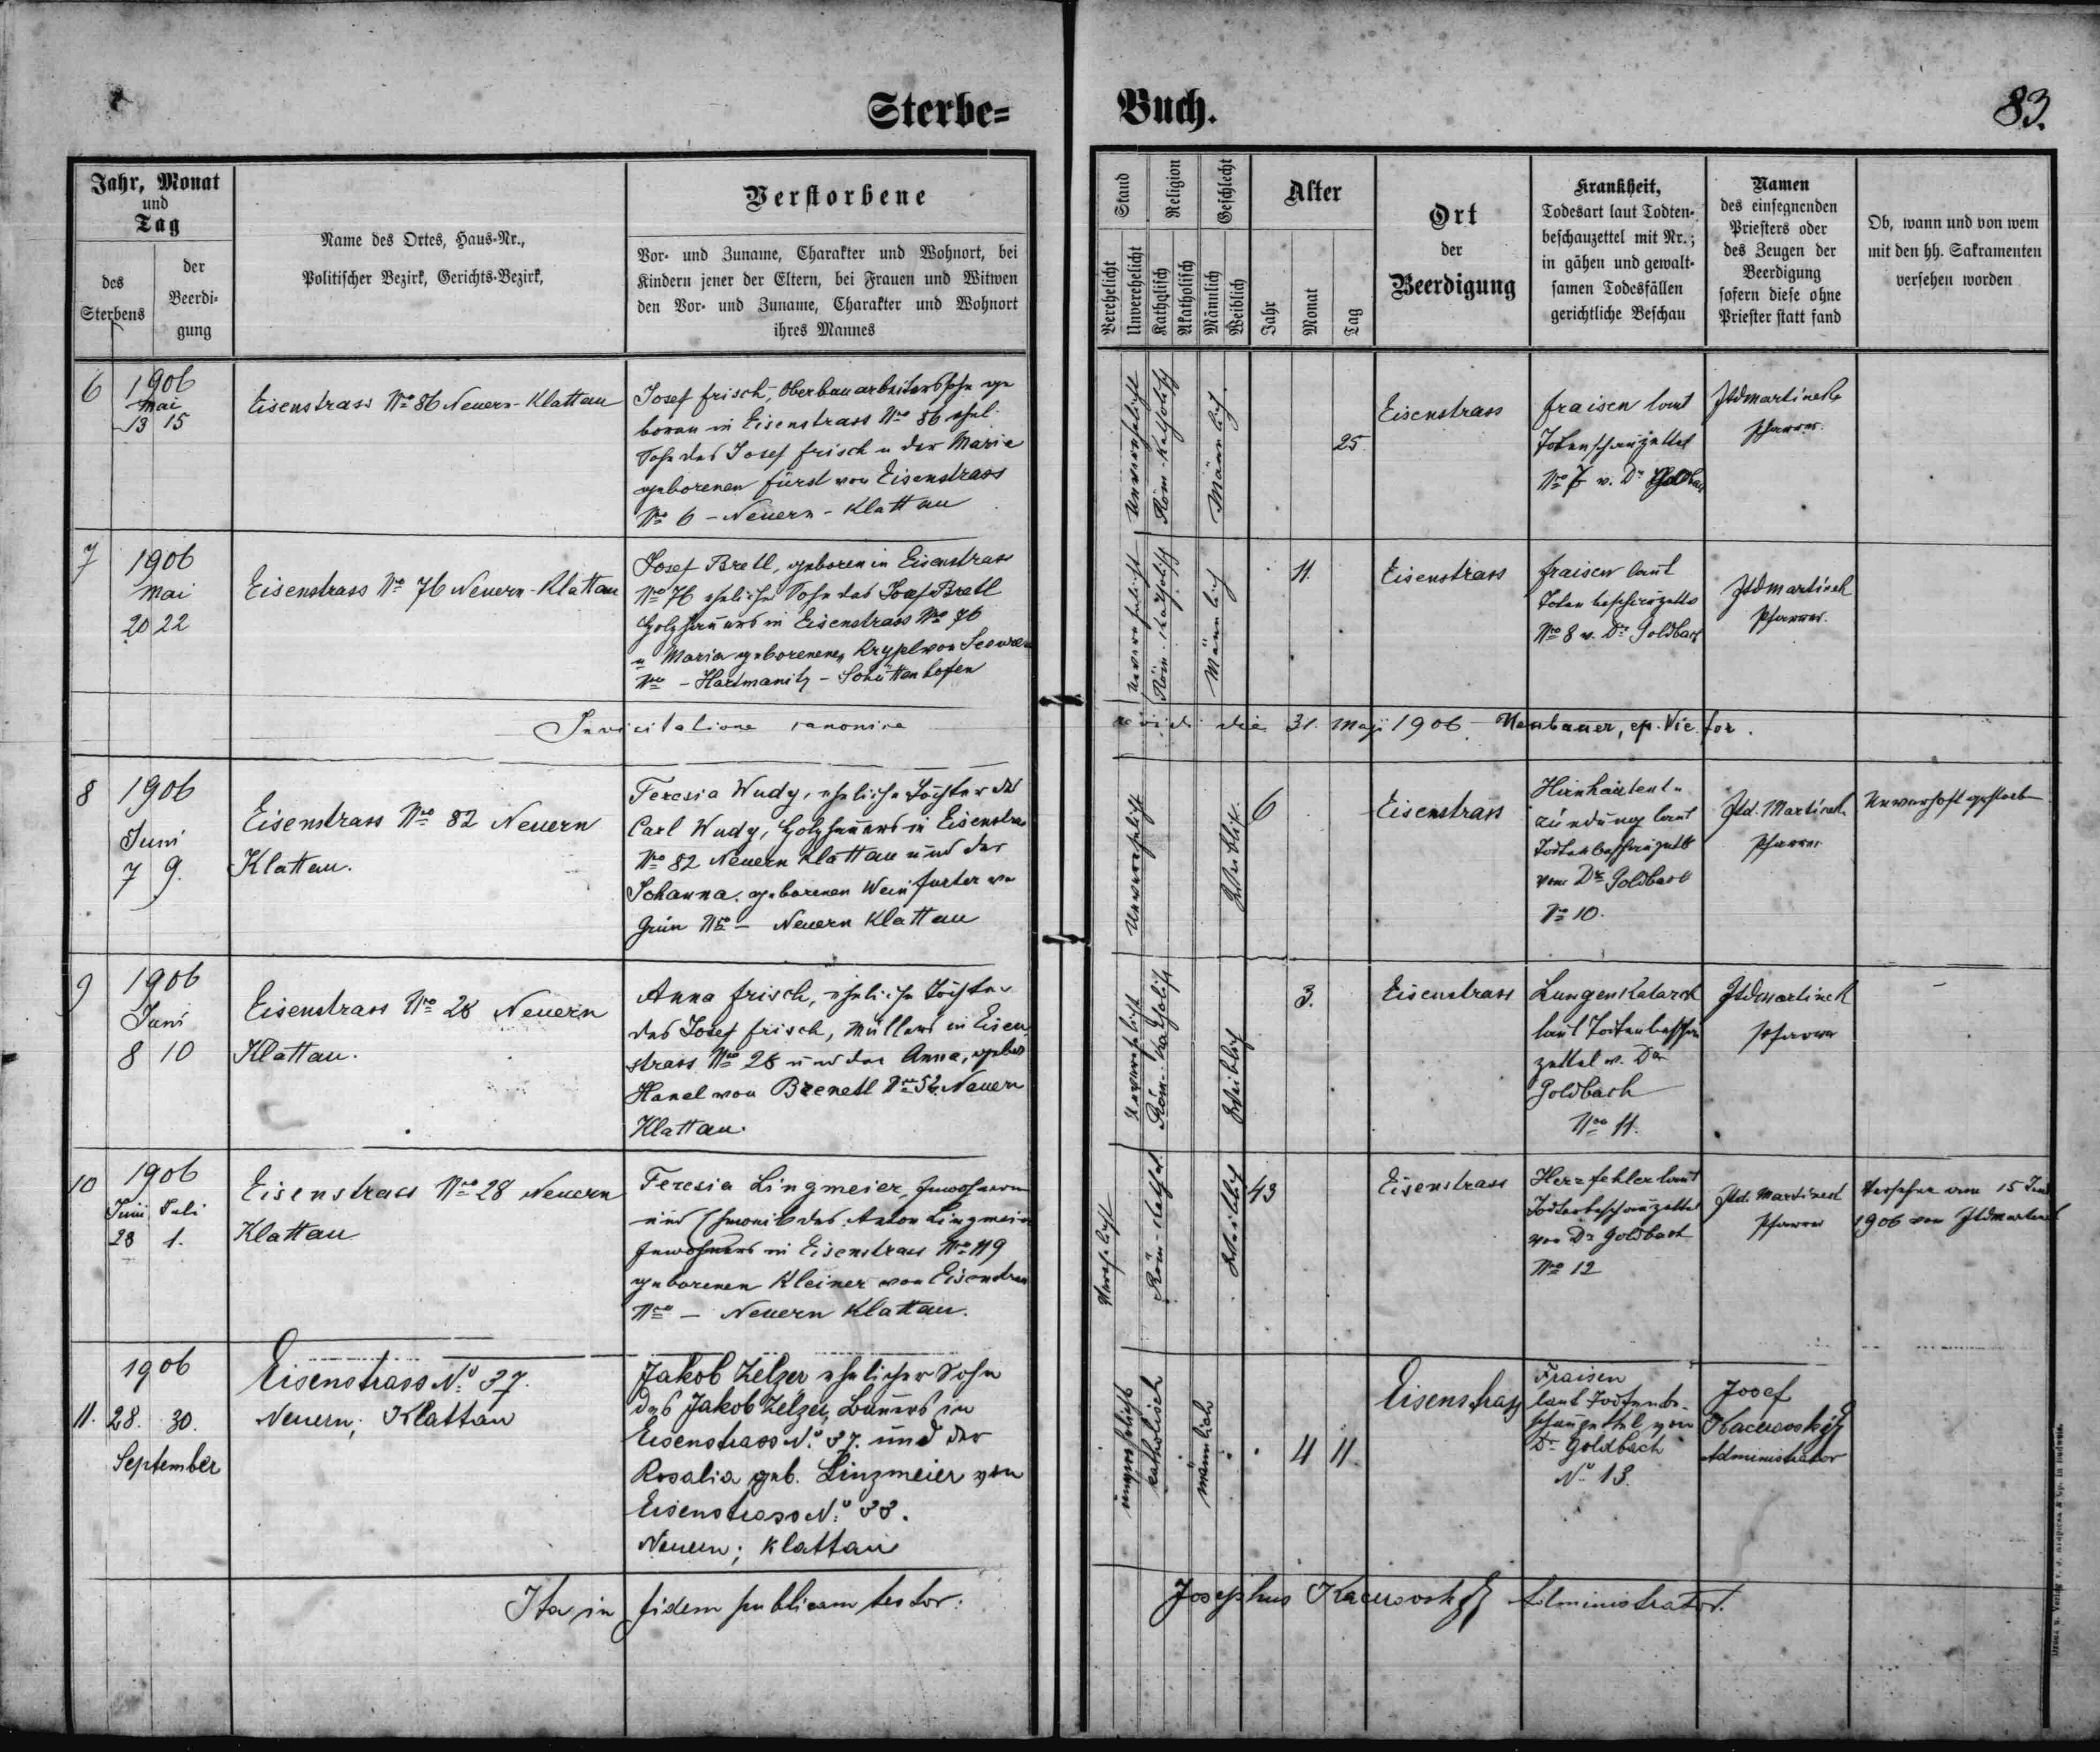 Sterbe=
Buch.
83.
Jahr, Monat
und
Tag
des
Sterbens
der
Beerdi-
gung
Name des Ortes, Haus-Nr.,
Politischer Bezirk, Gerichts-Bezirk,
Verstorbene
Vor- und Zuname, Charakter und Wohnort, bei
Kindern jener der Eltern, bei Frauen und Witwen
den Vor- und Zuname, Charakter und Wohnort
ihres Mannes
Stand
Verehelicht
Unverehelicht
Religion
Katholisch
Akatholisch
Geschlecht
Männlich
Weiblich
Alter
Jahr
Monat
Tag
Ort
der
Beerdigung
Krankheit,
Todesart laut Todten-
beschauzettel mit Nr.;
in gähen und gewalt-
samen Todesfällen
gerichtliche Beschau
Namen
des einsegnenden
Priesters oder
des Zeugen der
Beerdigung
sofern diese ohne
Priester statt fand
Ob, wann und von wem
mit den hh. Sakramenten
versehen worden
6
1906
Mai
13 15
Eisenstrass No 86 Neuern-Klattau
Josef Frisch, Oberbauarbeiterssohn ge
boren in Eisenstrass No 86 ehel.
Sohn des Josef Frisch u der Marie
geborenen Fürst von Eisenstrass
No 6 - Neuern - Klattau
Unverehelicht
Röm-Katholisch
Männlich.
25
Eisenstrass
Fraisen laut
Totenschauzettel
No v. Dr
Martinek
Pfarrer.
7
1906
Mai
20 22
Eisenstrass No 76 Neuern-Klattau
Josef Bretl, geboren in Eisenstrass
No 76 ehelicher Sohn des Josef Bretl
Holzhauers in Eisenstrass No 76
u Maria geborenen von
No - Hartmanitz - Schüttenhofen
Unverehelicht
Röm-Katholisch
Männlich
11.
Eisenstrass
Fraisen laut
Totenbeschauzettel
No 8 v. Dr Goldbach
Martinek
Pfarrer.
In visitatione canonica
vidi die 31. Maji 1906 Neubauer, ep. Vic. for.
8
1906
Juni
7 9.
Eisenstrass No 82 Neuern
Klattau.
Teresia Wudy, eheliche Tochter des
Carl Wudy, Holzhauers in Eisenstrass
No 82 Neuern Klattau und der
Johanna, geborenen Weinfurter von
Grün No - Neuern Klattau
Unverehelicht
Weiblich.
6
Eisenstrass
Hirnhautent-
zündung laut
Todtenbeschauzettel
von Dr Goldbach
No 10.
Martinek
Pfarrer
9
1906
Juni
8 10
Eisenstrass No 28 Neuern
Klattau.
Anna Frisch, eheliche Tochter
des Josef Frisch, Müllers in Eisen-
strass No 28 und der Anna, gebor
Hanel von Brenetl No 52 Neuern
Klattau.
Unverehelicht
Röm.-Katholisch
Weiblich
3.
Eisenstrass
Lungenkatarrh
laut Todtenbeschau
zettel v. Dr
Goldbach
No 11.
Martinek
Pfarrer
-
10
1906
Juni Juli
28 1.
Eisenstrass No 28 Neuern
Klattau
Teresia Lingmeier, Inwohnerin
und Eheweib des Anton Lingmeier
Inwohners in Eisenstrass No 119
geborenen Kleiner von Eisenstrass
No - Neuern Klattau.
Verehelicht
Röm-Kathol
Weiblich
43
Eisenstrass
Herzfehler laut
Todtenbeschauzettel
von Dr Goldbach
No 12
Martinek
Pfarrer
Versehen am 15 Juni
1906 von Martinek
11.
1906
28. 30.
September
Eisenstrass No. 37.
Neuern; Klattau
Jakob Zelzer ehelicher Sohn
des Jakob Zelzer, Bauers in
Eisenstrass No. 37. und der
Rosalia geb. Linzmeier von
Eisenstrass No. 33.
Neuern; Klattau
unverehelicht
katholisch
männlich
4 11
Eisenstrass
Fraisen
laut Todtenbe-
schauzettel von
Dr Goldbach
No 13.
Josef
Administrator
Ita in fidem publicam testor.
Josephus Administrator.